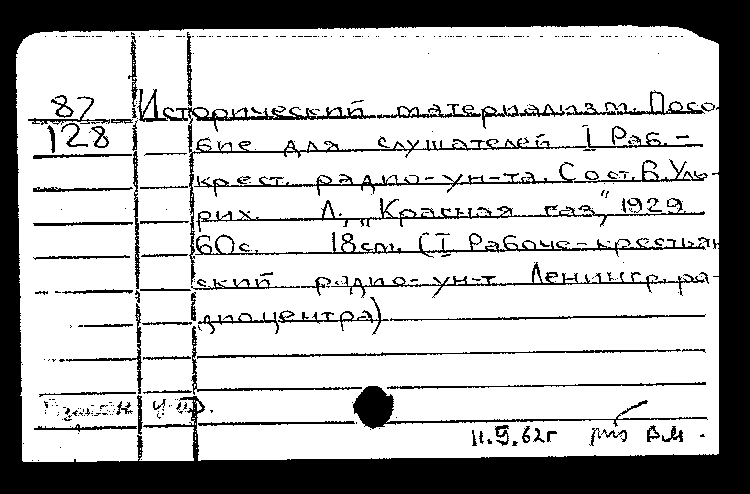 87 Исторический материализм. Посо-
128 бие для слушателей I Раб.-
крест. радио-ун-та. Сост. В. Уль-
рих. Л., „Красная газ", 1929
60с. 18см. (I Рабоче-крестьян
ский радио-ун-т Ленингр. ра-
диоцентра)
упр.
11.V.62г В.М.